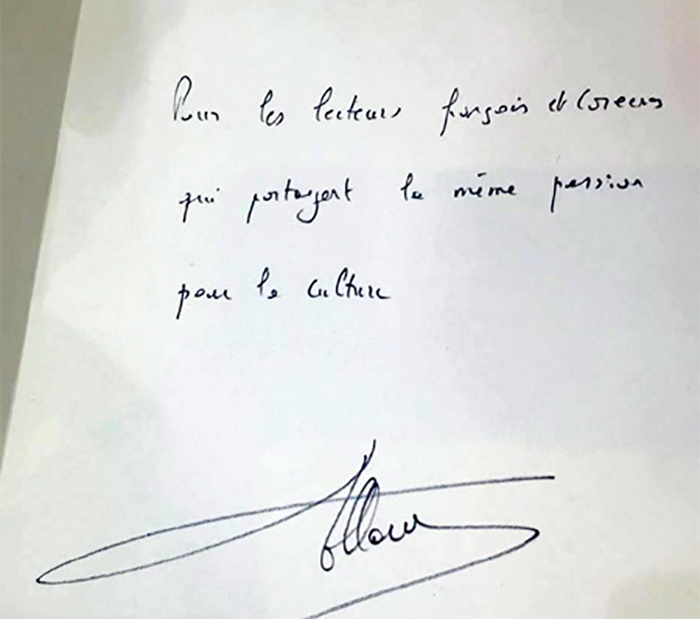 Pour les lecteurs français et Coréens
qui partagent la même passion
pour la culture